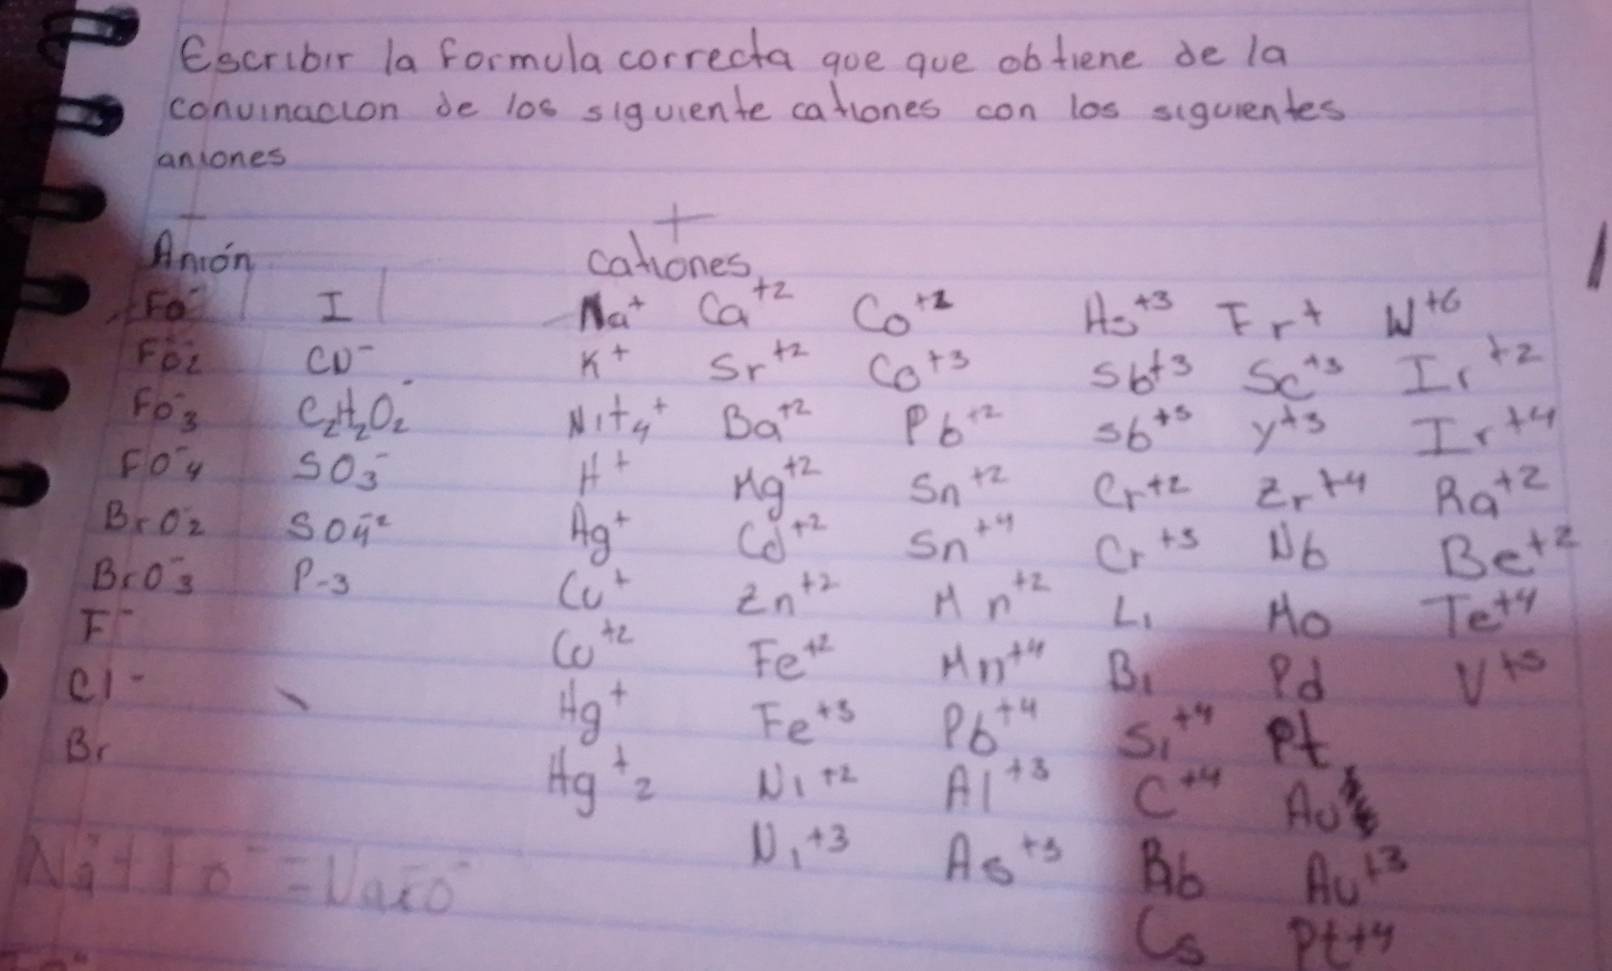 Escribir la formula correcta que que obtiene de la
convinacion de los siguiente cationes con los siguientes
aniones
- +
Anión cationes
FO⁻ I Na⁺ Ca⁺² Co⁺² As⁺³ Fr⁺ W⁺⁶
FO⁻₂ CN⁻ K⁺ Sr⁺² Co⁺³ Sb⁺³ Sc⁺³ Ir⁺²
FO⁻₃ C₂H₂O₂⁻ NH₄⁺ Ba⁺² Pb⁺² Sb⁺⁵ y⁺³ Ir⁺⁴
FO⁻₄ SO₃⁻ H⁺ Mg⁺² Sn⁺² Cr⁺² Zr⁺⁴ Ra⁺²
BrO⁻₂ SO₄⁻² Ag⁺ Cd⁺² Sn⁺⁴ Cr⁺³ Nb Be⁺²
BrO⁻₃ P-3 Cu⁺ Zn⁺² Mn⁺² Li Mo Te⁺⁴
F⁻ Cu⁺² Fe⁺² Mn⁺⁴ Bi Pd V⁺⁵
Cl⁻ Hg⁺ Fe⁺³ Pb⁺⁴ Si⁺⁴ Pt
Br Hg⁺₂ Ni⁺² Al⁺³ C⁺⁴ Au
Ni⁺³ As⁺³ Rb Au⁺³
Cs Pt+4